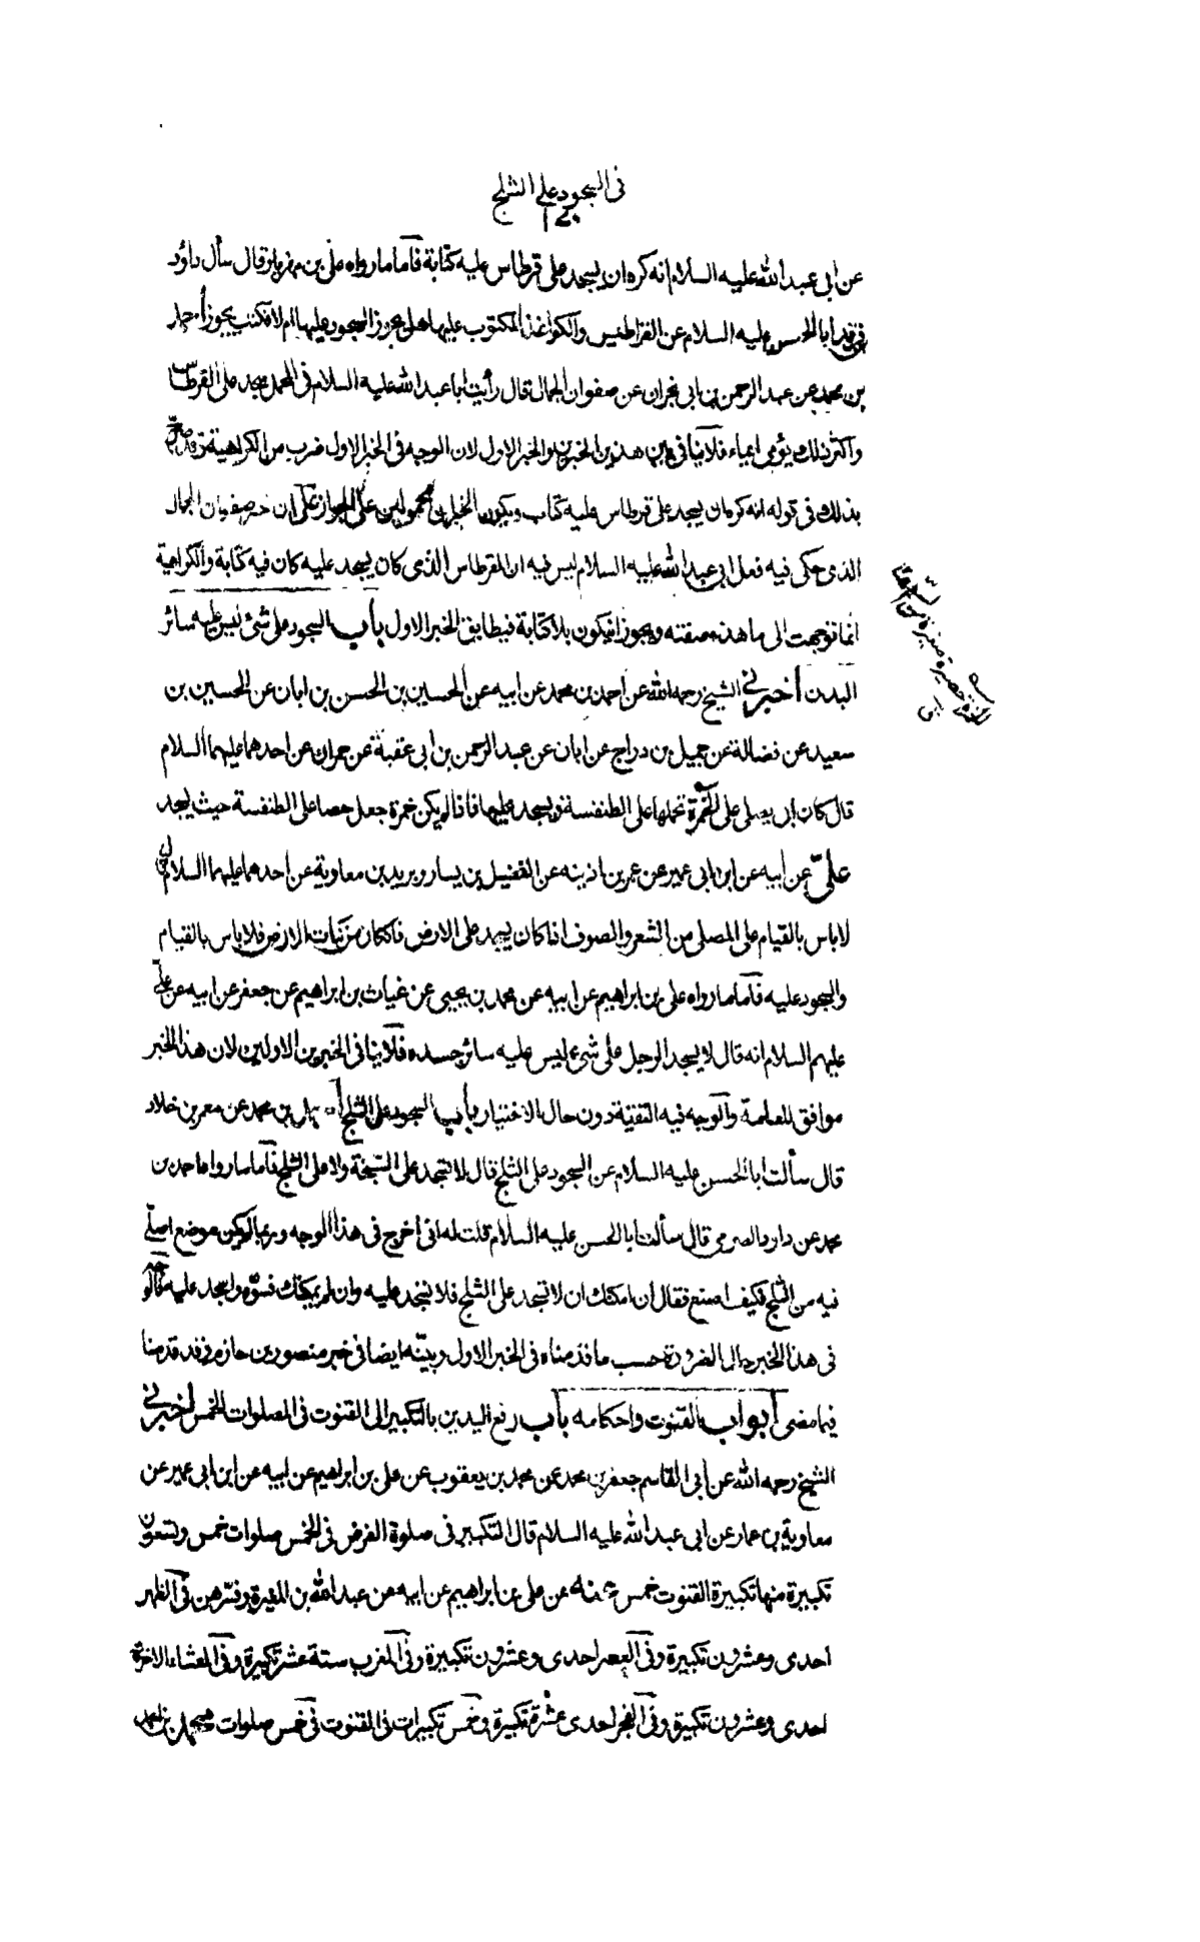 فى السجود على الثلج
عن ابى عبد الله عليه السلام انه كره ان يسجد على قرطاس عليه كتابة فاما ما رواه على بن مهزيار قال سأل داؤد
بن فرقد ابا الحسن عليه السلام عن القراطيس والكواغذ المكتوب عليها هل يجوز السجود عليها ام لا فكتب يجوز احمد
بن محمد عن عبد الرحمن بن ابى نجران عن صفوان الجمال قال رأيت ابا عبد الله عليه السلام فى المحمل يسجد على القرطاس
واكثر ذلك يؤمى ايماء فلا ينافى بين هذين الخبرين والخبر الاول لان الوجه فى الخبر الاول ضرب من الكراهية وقد صرح
بذلك فى قوله انه كره ان يسجد على قرطاس عليه كتاب ويكون الخبران محمولين على الجواز على ان خبر صفوان الجمال
الذى حكى فيه فعل ابى عبد الله عليه السلام ليس فيه ان القرطاس الذى كان يسجد عليه كان فيه كتابة والكراهية
انما توجهت الى ما هذه صفته ويجوز ان يكون بلا كتابة فيطابق الخبر الاول باب السجود على شئ ليس عليه سائر
البدن اخبرنى الشيخ رحمه الله عن احمد بن محمد عن ابيه عن الحسين بن الحسن بن ابان عن الحسين بن
سعيد عن فضالة عن جميل بن دراج عن ابان عن عبد الرحمن بن ابى عقبة عن حمران عن احدهما عليهما السلام
قال كان ابى يصلى على الخمرة تحملها على الطنفسة ويسجد عليها فاذا لم يكن خمرة جعل حصا على الطنفسة حيث يسجد
على عن ابيه عن ابن ابى عمير عن عمر بن اذينه عن الفضيل بن يسار وبريد بن معاوية عن احدهما عليهما السلام قال
لا باس بالقيام على المصلى من الشعر والصوف اذا كان يسجد على الارض فان كان من نبات الارض فلا باس بالقيام
والسجود عليه فاما ما رواه على بن ابراهيم عن ابيه عن محمد بن يحيى عن غياث بن ابراهيم عن جعفر عن ابيه عن على
عليهم السلام انه قال لا يسجد الرجل على شئ ليس عليه سائر جسده فلا ينافى الخبرين الاولين لان هذا الخبر
موافق للعامة والوجه فيه التقية دون حال الاختيار باب السجود على الثلج احمد بن محمد عن معمر بن خلاد
قال سألت ابا الحسن عليه السلام عن السجود على الثلج قال لا تسجد على السبخة ولا على الثلج فاما ما رواه احمد بن
محمد عن داود الصرمى قال سألت ابا الحسن عليه السلام قلت له انى اخرج فى هذا الوجه وربما لم يكن موضع اصلى
فيه من الثلج فكيف اصنع فقال ان امكنك ان لا تسجد على الثلج فلا تسجد عليه وان لم يمكنك فسوه واسجد عليه فالوجه
فى هذا الخبر حال الضرورة حسب ما قدمناه فى الخبر الاول وبينه ايضا فى خبر منصور بن حازم وقد قدمنا
فيما مضى ابواب القنوت واحكامه باب رفع اليدين بالتكبير الى القنوت فى الصلوات الخمس اخبرنى
الشيخ رحمه الله عن ابى القاسم جعفر بن محمد عن محمد بن يعقوب عن على بن ابراهيم عن ابيه عن ابن ابى عمير عن
معاوية بن عمار عن ابى عبد الله عليه السلام قال التكبير فى صلوة الفرض فى الخمس صلوات خمس وتسعون
تكبيرة منها تكبيرة القنوت خمس عنه عن على بن ابراهيم عن ابيه عن عبد الله بن المغيرة وفسرهن فى الظهر
احدى وعشرون تكبيرة وفى العصر احدى وعشرون تكبيرة وفى المغرب ستة عشر تكبيرة وفى العشاء الاخرة
احدى وعشرون تكبيرة وفى الفجر احدى عشرة تكبيرة وخمس تكبيرات فى القنوت فى خمس صلوات محمد بن احمد
الخمرة حصيرة صغيرة من السعف